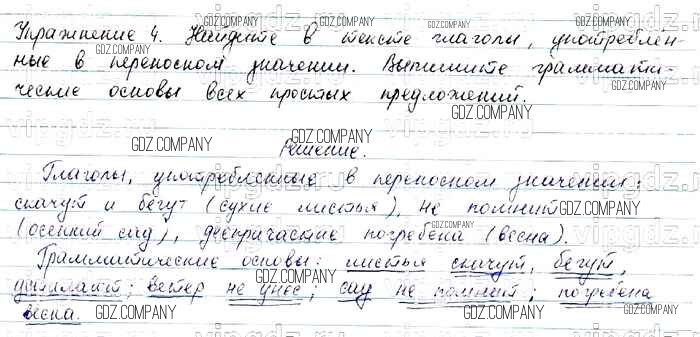 Упражнение 4. Найдите в тексте глаголы, употреблён-
ные в переносном значении. Выпишите граммати-
ческие основы всех простых предложений.
Решение.
Глаголы, употребленные в переносном значении:
скачут и бегут (сухие листья), не помнит
(осенний сад), деепричастие погребена (весна).
Грамматические основы: листья скачут, бегут,
ветер не унёс; сад не помнит; погребена
весна.
GDZ.COMPANY
GDZ.COMPANY
GDZ.COMPANY
GDZ.COMPANY
GDZ.COMPANY
GDZ.COMPANY
GDZ.COMPANY
GDZ.COMPANY
GDZ.COMPANY
GDZ.COMPANY
GDZ.COMPANY